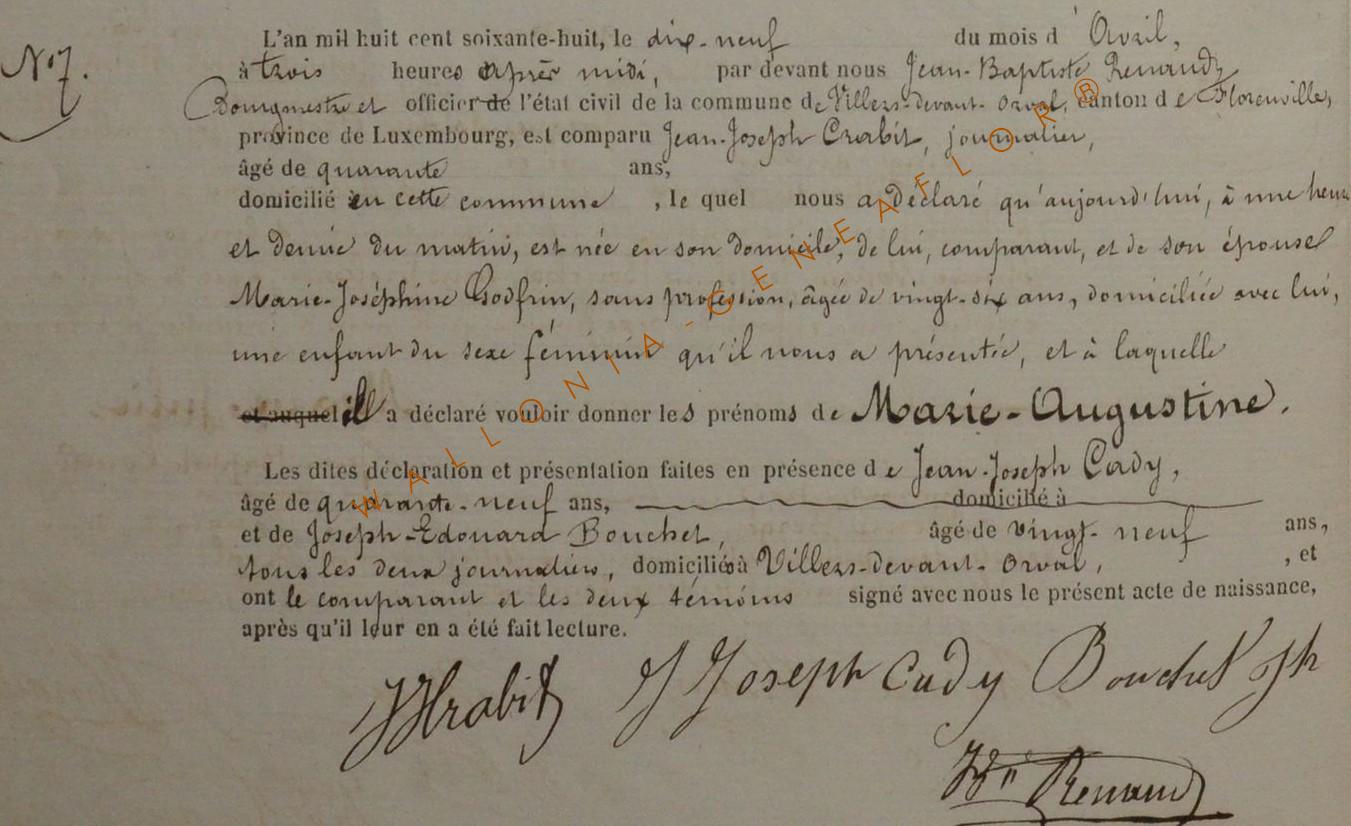 N° 7.
L'an mil huit cent soixante-huit, le dix-neuf du mois d'Avril,
à trois heures après midi, par devant nous Jean-Baptiste Renaud,
Bourgmestre et officier de l'état civil de la commune de Villers-devant-Orval, canton de Florenville,
province de Luxembourg, est comparu Jean-Joseph Crabit, journalier,
âgé de quarante ans,
domicilié en cette commune, le quel nous a déclaré qu'aujourd'hui, à une heure
et demie du matin, est née en son domicile, de lui, comparant, et de son épouse
Marie-Joséphine Godfrin, sans profession, âgée de vingt-six ans, domiciliée avec lui,
une enfant du sexe féminin qu'il nous a présentée, et à laquelle
et auquel il a déclaré vouloir donner les prénoms de Marie-Augustine.
Les dites déclaration et présentation faites en présence de Jean-Joseph Cady,
âgé de quarante-neuf ans, domicilié à
et de Joseph-Edouard Bouchet, âgé de vingt-neuf ans,
tous les deux journaliers, domiciliés à Villers-devant-Orval, , et
ont le comparant et les deux témoins signé avec nous le présent acte de naissance,
après qu'il leur en a été fait lecture.
J Joseph Cady Bouchet Jh
Renaud
WALLONIA-GENEAFLOR®